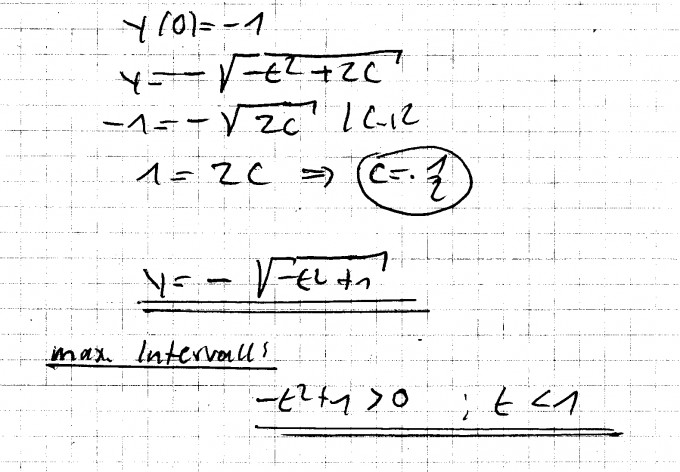 y(0)=-1
y=-√(-t²+2C)
-1=-√(2C) |(..)²
1=2C ⇒ C=1/2
y=-√(-t²+1)
max. Intervall:
-t²+1>0 ; t<1